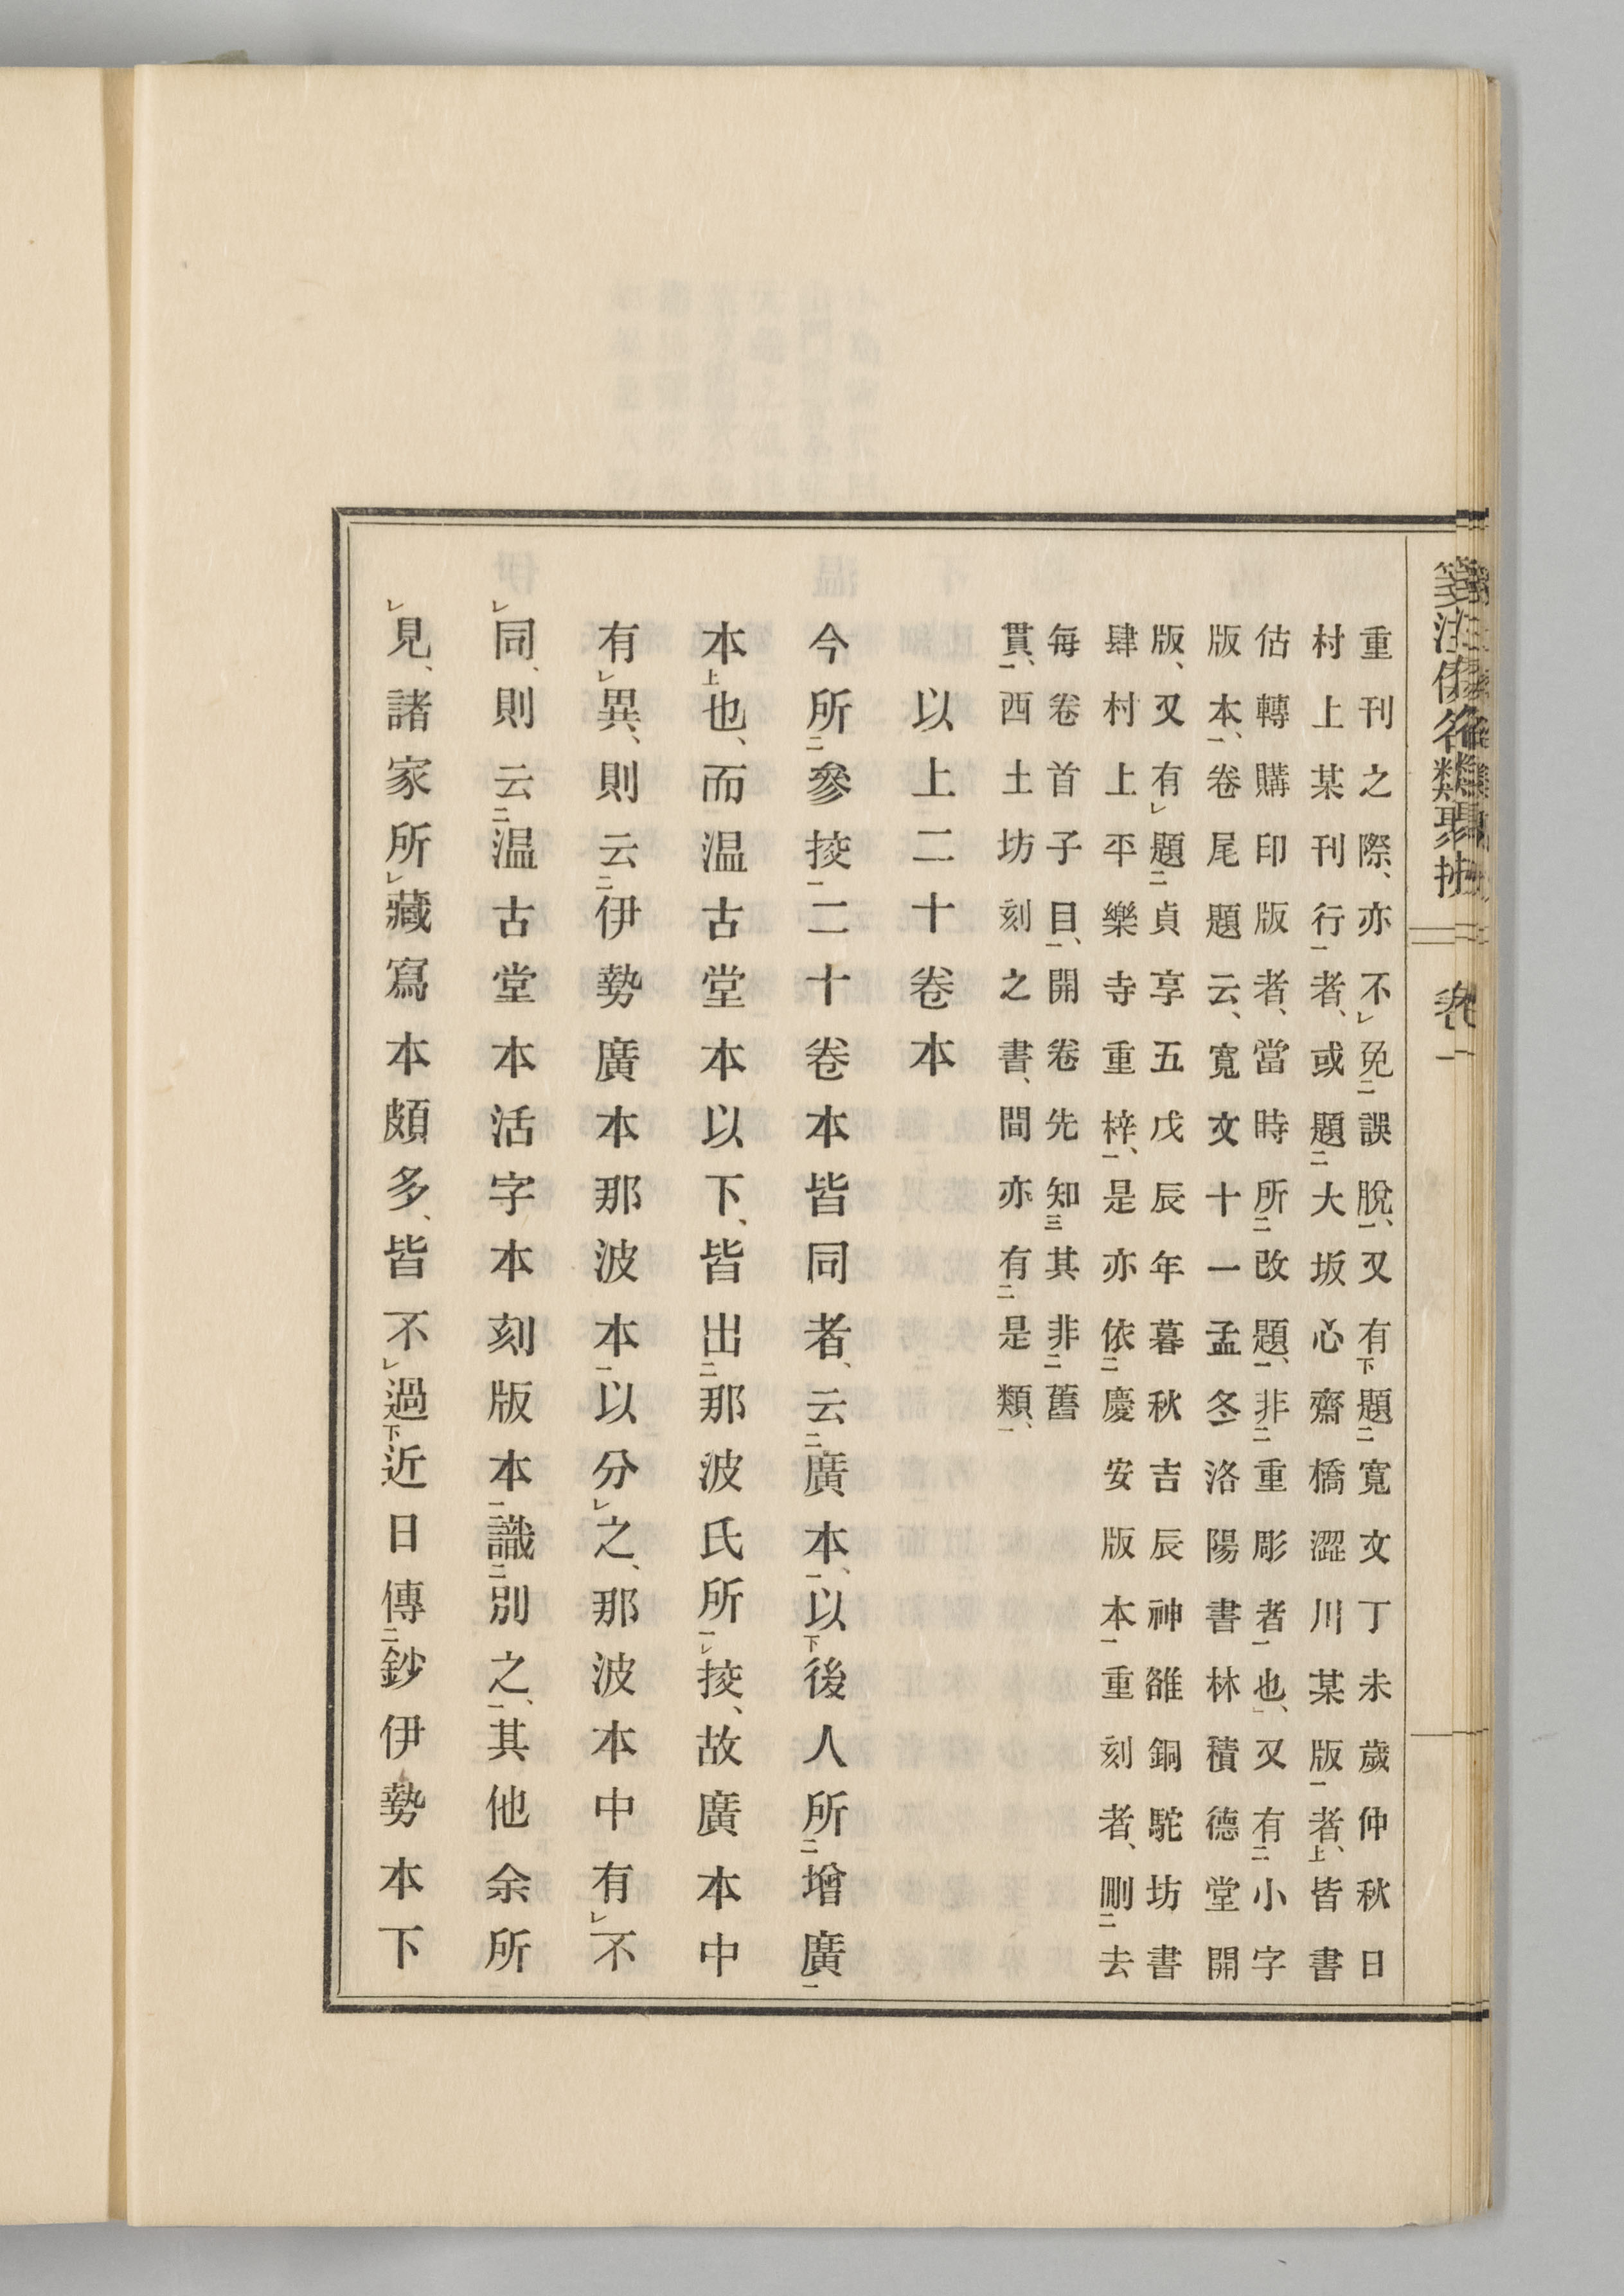 箋注倭名類聚抄 卷一
重刊之際、亦不㆑免㆓誤脫㆒、又有㆘題㆓寬文丁未歲仲秋日
村上某刊行㆒者、或題㆓大坂心齋橋澀川某版㆒者㆖、皆書
估轉購印版者、當時所㆓改題㆒、非㆓重彫者㆒也、又有㆓小字
版本㆒、卷尾題云、寬文十一孟冬洛陽書林積德堂開
版、又有㆑題㆓貞享五戊辰年暮秋吉辰神雒銅駝坊書
肆村上平樂寺重梓㆒、是亦依㆓慶安版本㆒重刻者、刪㆓去
每卷首子目㆒、開卷先知㆔其非㆓舊
貫㆒、西土坊刻之書、間亦有㆓是類㆒、
以上二十卷本
今所㆓參挍㆒二十卷本皆同者、云㆓廣本㆒、以㆘後人所㆓增廣㆒
本㆖也、而温古堂本以下、皆出㆓那波氏所㆒㆑挍、故廣本中
有㆑異、則云㆓伊勢廣本那波本㆒以分㆑之、那波本中有㆑不
㆑同、則云㆓温古堂本活字本刻版本㆒識㆓別之㆒、其他余所
㆑見、諸家所㆑藏寫本頗多、皆不㆑過㆘近日傳㆓鈔伊勢本下